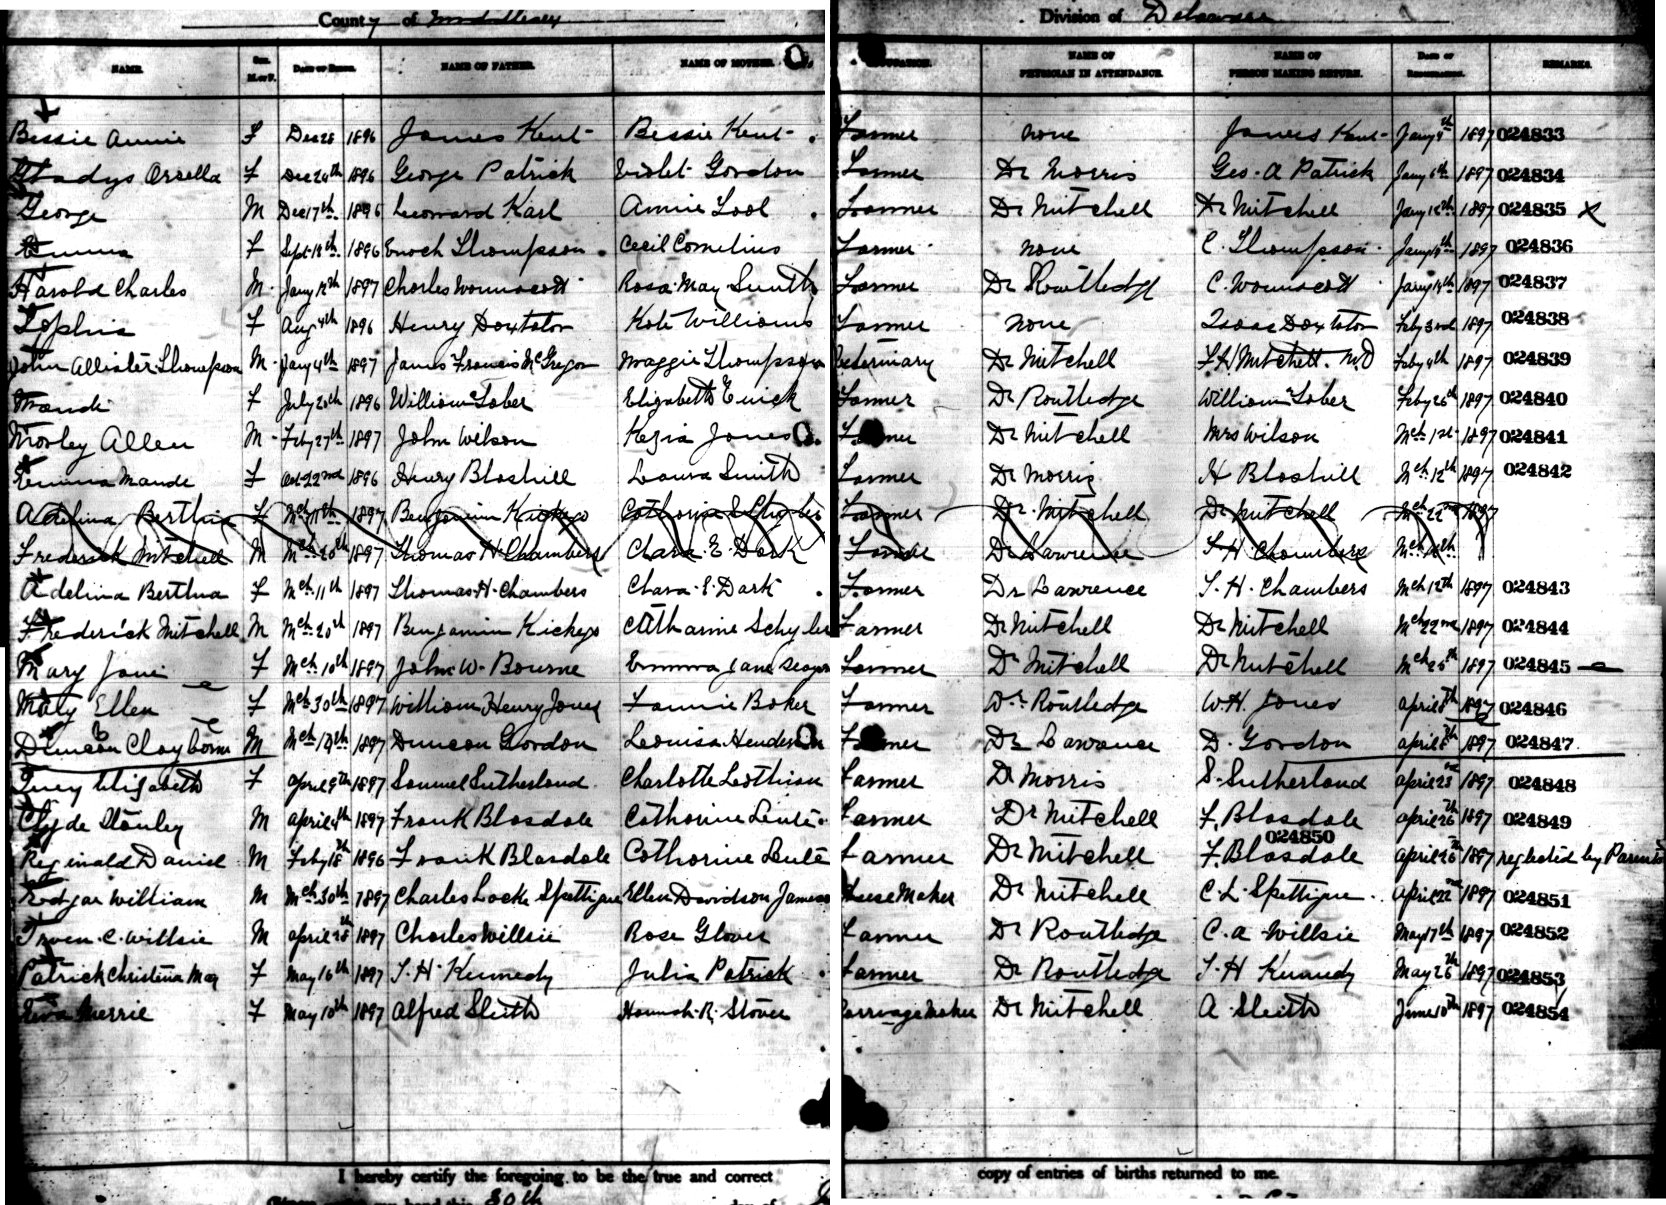 County of Middlesex Division of Delaware
NAME. Sex. M. or F. Date of Birth. NAME OF FATHER. NAME OF MOTHER. OCCUPATION. NAME OF PHYSICIAN IN ATTENDANCE. NAME OF PERSON MAKING RETURN. Date of Registration. REMARKS.
Bessie Annie F Dec 28 1896 James Kent Bessie Kent Farmer none James Kent Jany 4th 1897 024833
Gladys Orsella F Dec 24th 1896 George Patrick Violet Gordon Farmer Dr Morris Geo. A Patrick Jany 6th 1897 024834
George M Dec 17th 1896 Leonard Karl Annie Farmer Dr Mitchell Dr Mitchell Jany 12th 1897 024835 X
Emma F Sept 18th 1896 Enoch Thompson Cecil Cornelius Farmer none E. Thompson Jany 1897 024836
Harold Charles M Jany 12th 1897 Charles Wonnacott Rosa May Smith Farmer Dr Routledge C. Wonnacott Jany 14th 1897 024837
Sophia F Aug 4th 1896 Henry Doxtator Kate Williams Farmer none Isaac Doxtator Feby 3rd 1897 024838
John Allister Thompson M Jany 4th 1897 James Francis McGregor Maggie Thompson Veterinary Dr Mitchell F. H Mitchell. M.D Feby 4th 1897 024839
Maude F July 20th 1896 William Tober Elizabeth Emick Farmer Dr Routledge William Tober Feby 26th 1897 024840
Morley Allen M Feby 27th 1897 John Wilson Kezia Jones Farmer Dr Mitchell Mrs Wilson Mch 1st 1897 024841
Emma Maude F Oct 22nd 1896 Henry Bloshill Laura Smith Farmer Dr Morris H Bloshill Mch 12th 1897 024842
Adelina Bertha F Mch 11th 1897 Benjamin Kickeys Catharine Schyler Farmer Dr. Mitchell Dr Mitchell Mch 22nd 1897
Frederick Mitchell M Mch 20th 1897 Thomas H Chambers Clara. E. Dark Farmer Dr Lawrence T H Chambers Mch
Adelina Bertha F Mch 11th 1897 Thomas H. Chambers Clara. E. Dark Farmer Dr Lawrence T. H. Chambers Mch 12th 1897 024843
Frederick Mitchell M Mch 20th 1897 Benjamin Kickeys Catharine Schyler Farmer Dr Mitchell Dr Mitchell Mch 22nd 1897 024844
Mary Jane F Mch 10th 1897 John W. Bourne Emma Jane Farmer Dr Mitchell Dr Mitchell Mch 25th 1897 024845
Mary Ellen F Mch 30th 1897 William Henry Jones Fannie Baker Farmer Dr. Routledge W. H. Jones April 8th 1897 024846
Duncan Clayborn M Mch 19th 1897 Duncan Gordon Leonisa Henderson Farmer Dr Lawrence D. Gordon April 8th 1897 024847
Elizabeth F April 9th 1897 Samuel Sutherland Charlotte Lothian Farmer Dr Morris S. Sutherland April 23rd 1897 024848
Clyde Stanley M April 4th 1897 Frank Blasdale Catharine Lente Farmer Dr Mitchell F. Blasdale April 26th 1897 024849
Reginald Daniel M Feby 18th 1896 Frank Blasdale Catharine Lente Farmer Dr Mitchell F. Blasdale 024850 April 26th 1897 neglected by Parents
Rodgar William M Mch 30th 1897 Charles Locke Spettigue Ellen Davidson James Cheese Maker Dr Mitchell C. L. Spettigue April 22nd 1897 024851
Irven. C. Willsie M April 28th 1897 Charles Willsie Rose Glover Farmer Dr Routledge C. A Willsie May 17th 1897 024852
Patrick Christina May F May 16th 1897 T. H. Kennedy Julia Patrick Farmer Dr Routledge T. H Kennedy May 26th 1897 024853
Eva Merrie F May 10th 1897 Alfred Sleith Hannah. R. Stover Carriage Maker Dr Mitchell A. Sleith June 10th 1897 024854
I hereby certify the foregoing to be the true and correct copy of entries of births returned to me.
30th